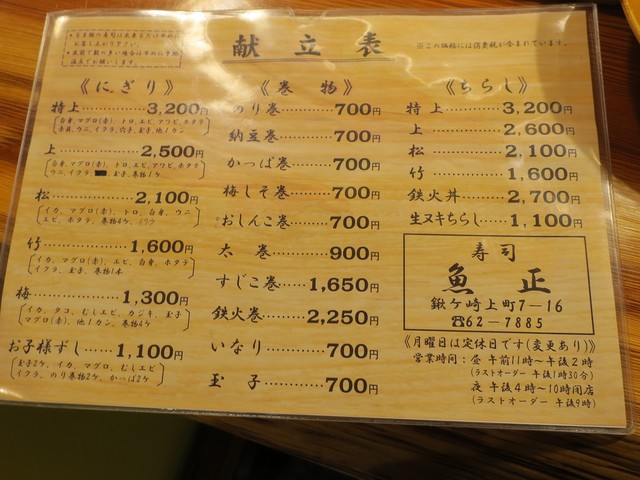 献立表
※この価格には消費税が含まれています。
《にぎり》
特上…………3,200円
白身、マグロ(赤)、トロ、エビ、アワビ、ホタテ
上……………2,500円
白身、マグロ(赤)、トロ、エビ、アワビ、ホタテ
ウニ、イクラ 玉子、巻物1ケ
松……………2,100円
イカ、マグロ(赤)、トロ、白身、ウニ
エビ、ホタテ、巻物4ケ
竹……………1,600円
イカ、マグロ(赤)、エビ、白身、ホタテ
イクラ、玉子、巻物1本
梅……………1,300円
イカ、タコ、むしエビ、カジキ、玉子
マグロ(赤)、他1カン、巻物4ケ
お子様ずし…1,100円
玉子2ケ、イカ、マグロ、むしエビ
イクラ、のり巻物2ケ、かっぱ2ケ
《巻物》
のり巻………700円
納豆巻………700円
かっぱ巻……700円
梅しそ巻……700円
おしんこ巻…700円
太巻…………900円
すじこ巻…1,650円
鉄火巻……2,250円
いなり………700円
玉子…………700円
《ちらし》
特上…………3,200円
上……………2,600円
松……………2,100円
竹……………1,600円
鉄火丼………2,700円
生ヌキちらし…1,100円
寿司
魚正
鍬ケ崎上町7-16
☎62-7885
《月曜日は定休日です(変更あり)》
営業時間:昼 午前11時〜午後2時
(ラストオーダー 午後1時30分)
夜 午後4時〜10時閉店
(ラストオーダー 午後9時)